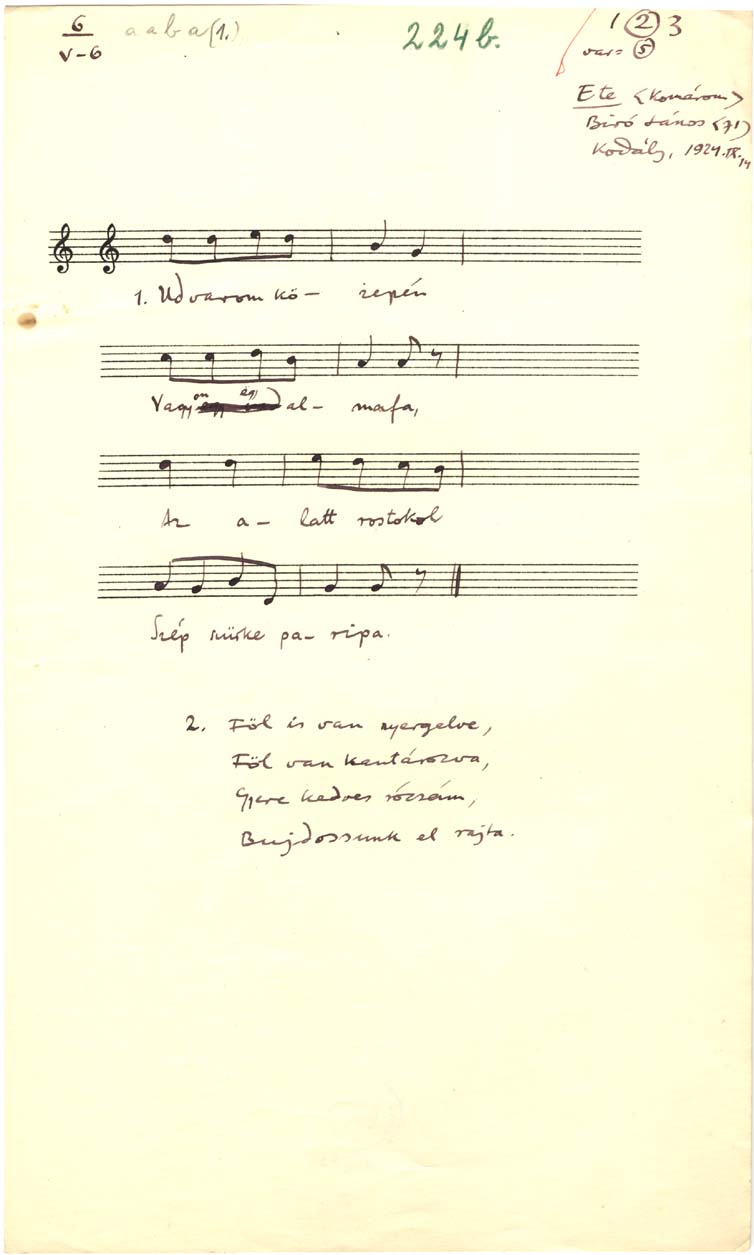 6 a a b a (1.) 224b. 1 2 3
V-6 var= 5
Ete (Komárom)
Biró János (71)
Kodály, 1924. IX. 14
1. Udvarom kö- zepén
on egy
Vagy al- mafa,
Az a- latt rostokol
Szép szürke pa- ripa.
2. Föl is van nyergelve,
Föl van kantározva,
Gyere kedves rózsám,
Bujdossunk el rajta.